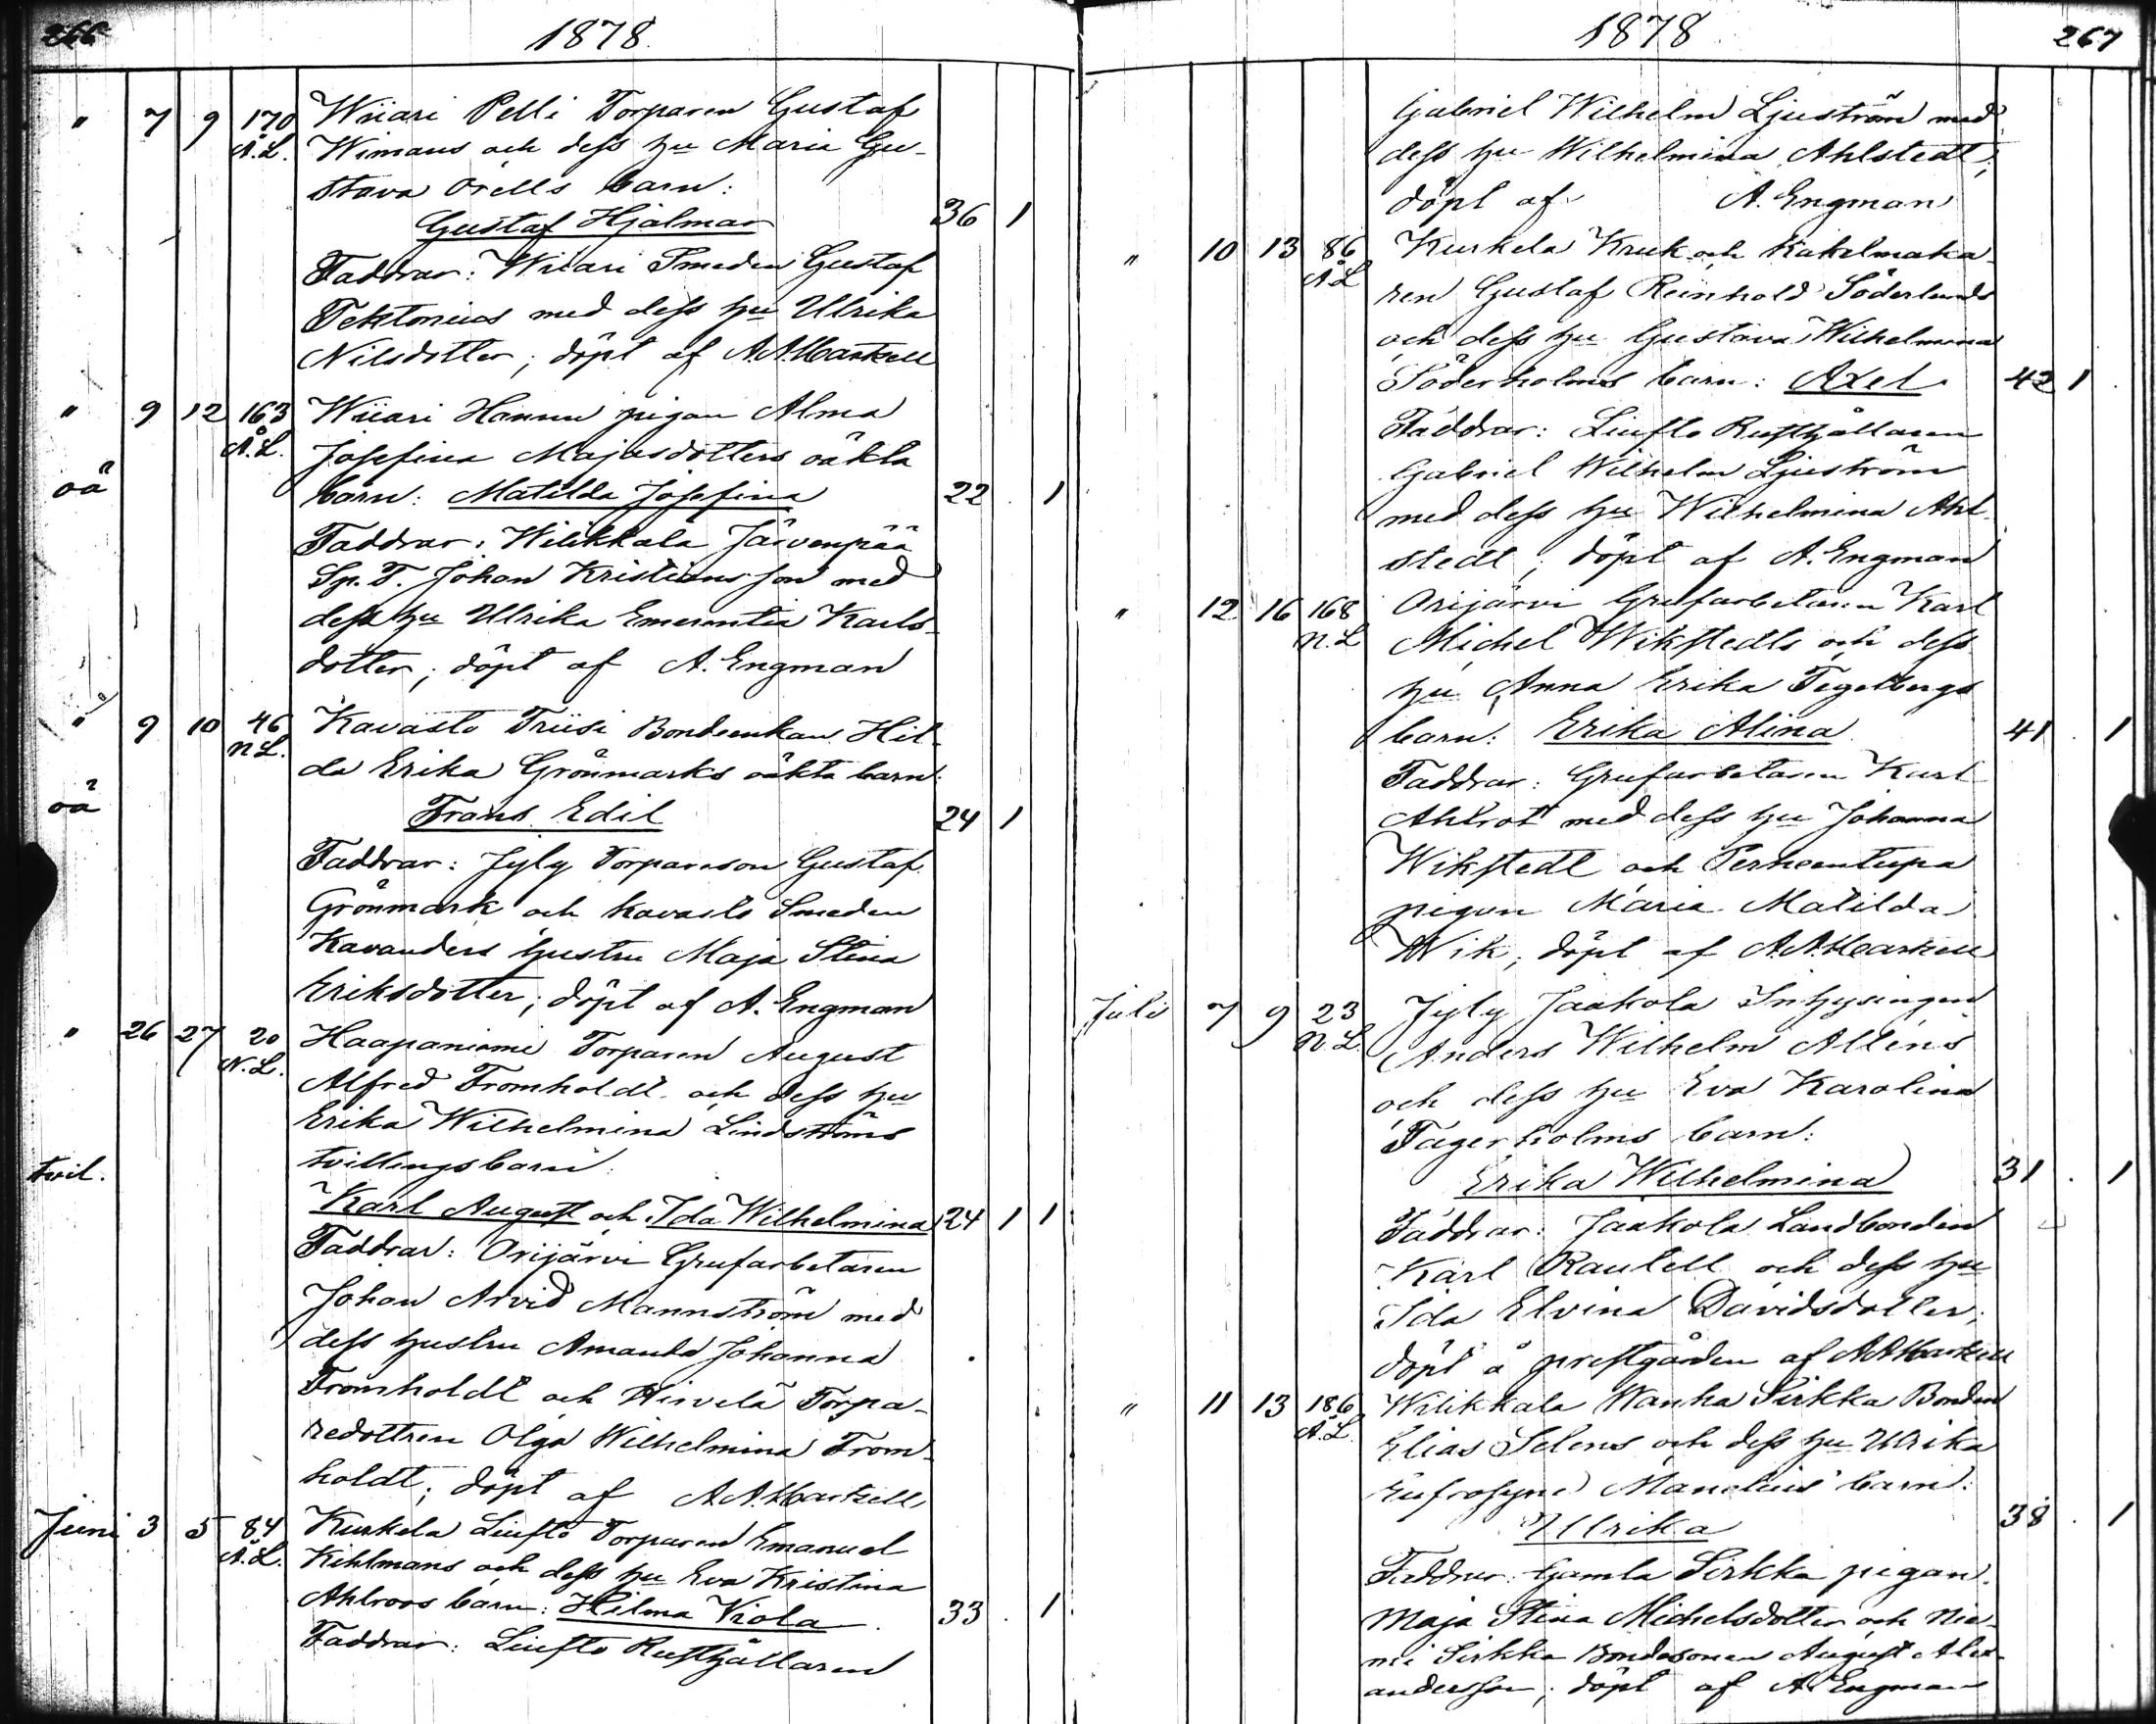 266
1878.
" 7 9 170 Wiiari Pelli Torparen Gustaf
Å.L. Wimans och dess hu Maria Gu-
stava Orells barn:
Gustaf Hjalmar 36 1
Faddrar: Wiiari Smeden Gustaf
Tektonius med dess hu Ulrika
Nilsdotter; döpt af A A Markell
" 9 12 163 Wiiari Hannu pigan Alma
Å.L. Josefina Majasdotters oäkta
oä barn: Matilda Josefina 22 1
Faddrar: Wilikkala Järvenpää
Sp. T. Johan Kristiansson med
dess hu Ulrika Emerentia Karls-
dotter; döpt af A. Engman
" 9 10 46 Kavasto Triisi Bondeenkan Hil-
N L. da Erika Grönmarks oäkta barn:
oä Frans Edil 24 1
Faddrar: Jyly Torpareson Gustaf
Grönmark och Kavasto Smeden
Kavanders hustru Maja Stina
Eriksdotter; döpt af A. Engman
" 26 27 20 Haapaniemi Torparen August
N.L. Alfred Fromholdt och dess hu
Erika Wilhelmina Lindströms
tvil. tvillingsbarn:
Karl August och Ida Wilhelmina 24 1 1
Faddrar: Orijärvi Grufarbetaren
Johan Arvid Mannström med
dess hustru Amanda Johanna
Fromholdt och Hirvelä Torpa-
redottren Olga Wilhelmina From-
holdt; döpt af A A Markell
Juni 3 5 84 Kurkela Liufto Torparen Emanuel
Å.L. Kihlmans och dess hu Eva Kristina
Ahlroos barn: Hilma Viola 33 1
Faddrar: Liufto Rusthållaren
1878
267
Gabriel Wilhelm Ljuström med
dess hu Wilhelmina Ahlstedt;
döpt af A. Engman
" 10 13 86 Kurkela Kruk och Kakelmaka-
Å L ren Gustaf Reinhold Söderlunds
och dess hu Gustava Wilhelmina
Söderholms barn: Axel 42 1
Faddrar: Liufto Rusthållaren
Gabriel Wilhelm Ljuström
med dess hu Wilhelmina Ahl-
stedt; döpt af A. Engman
" 12 16 168 Orijärvi Grufarbetaren Karl
N.L Michel Wikstedts och dess
hu Anna Erika Tegelbergs
barn: Erika Alina 41 1
Faddrar: Grufarbetaren Karl
Ahlrot med dess hu Johanna
Wikstedt och Perheentupa
pigan Maria Matilda
Wik; döpt af A.A. Markell
Juli 7 9 23 Jyly Jaakola Inhysingen
N.L. Anders Wilhelm Alléns
och dess hu Eva Karolina
Fagerholms barn:
Erika Wilhelmina 31 1
Faddrar: Jaakola Landbonden
Karl Rautell och dess hu
Ida Elvina Davidsdotter;
döpt å prestgården af A A Markell
" 11 13 186 Wilikkala Wanha Sirkka Bonden
Å.L. Elias Selens och dess hu Ulrika
Eufrosyne Manelius barn:
Ulrika 38 1
Faddrar: Gamla Sirkka pigan
Maja Stina Michelsdotter och Nie-
mi Sirkka Bondesonen August Alex-
andersson; döpt af A Engman